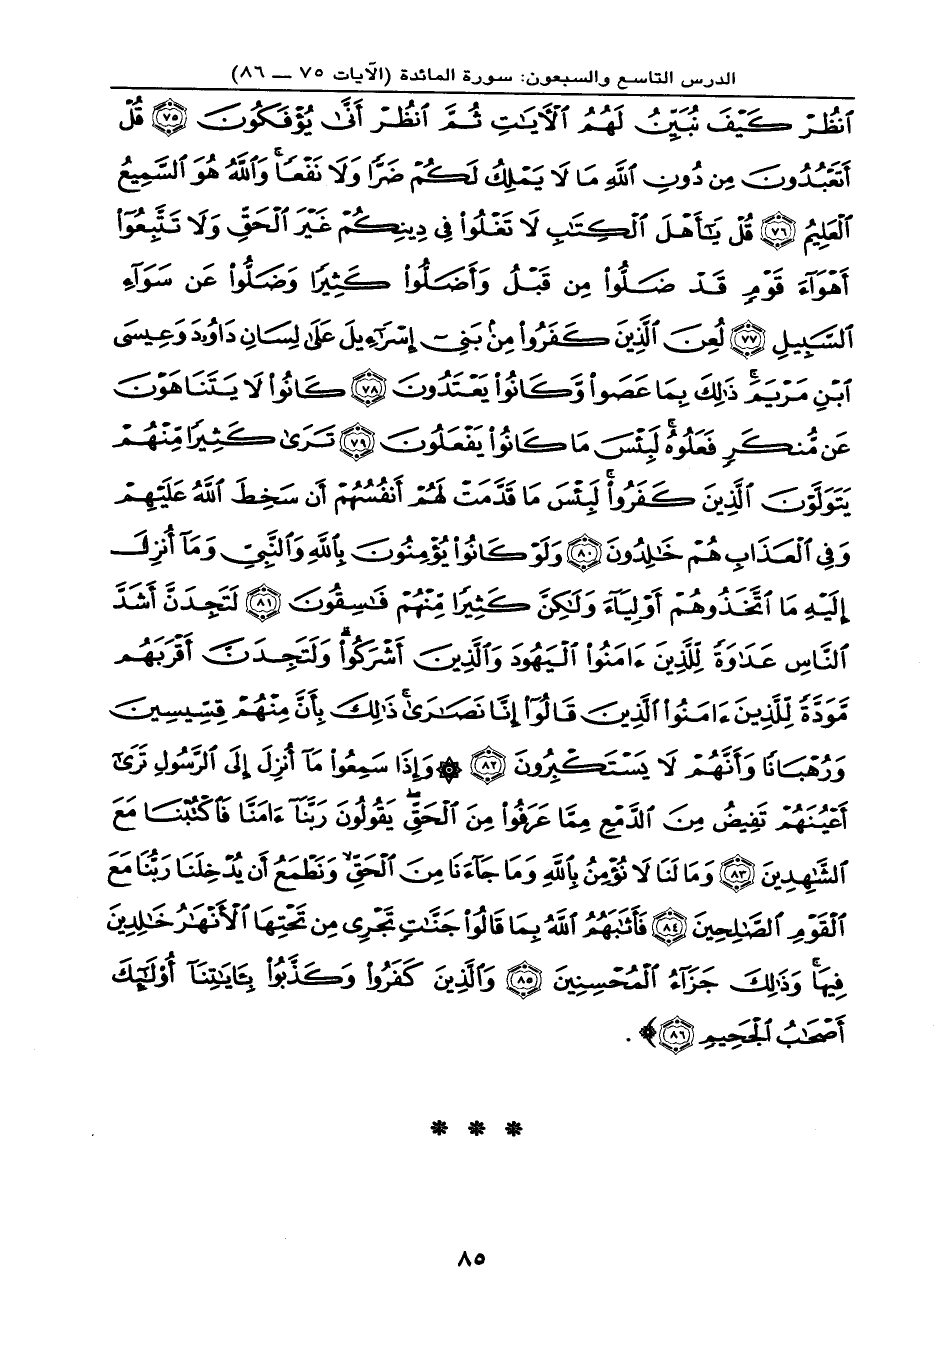 الدرس التاسع والسبعون: سورة المائدة (الآيات ٧٥ — ٨٦)
ٱنظُرْ كَيْفَ نُبَيِّنُ لَهُمُ ٱلْآيَاتِ ثُمَّ ٱنظُرْ أَنَّىٰ يُؤْفَكُونَ ﴿٧٥﴾ قُلْ
أَتَعْبُدُونَ مِن دُونِ ٱللَّهِ مَا لَا يَمْلِكُ لَكُمْ ضَرًّا وَلَا نَفْعًا ۚ وَٱللَّهُ هُوَ ٱلسَّمِيعُ
ٱلْعَلِيمُ ﴿٧٦﴾ قُلْ يَٰٓأَهْلَ ٱلْكِتَٰبِ لَا تَغْلُوا۟ فِى دِينِكُمْ غَيْرَ ٱلْحَقِّ وَلَا تَتَّبِعُوٓا۟
أَهْوَآءَ قَوْمٍ قَدْ ضَلُّوا۟ مِن قَبْلُ وَأَضَلُّوا۟ كَثِيرًا وَضَلُّوا۟ عَن سَوَآءِ
ٱلسَّبِيلِ ﴿٧٧﴾ لُعِنَ ٱلَّذِينَ كَفَرُوا۟ مِنۢ بَنِىٓ إِسْرَٰٓءِيلَ عَلَىٰ لِسَانِ دَاوُۥدَ وَعِيسَى
ٱبْنِ مَرْيَمَ ۚ ذَٰلِكَ بِمَا عَصَوا۟ وَّكَانُوا۟ يَعْتَدُونَ ﴿٧٨﴾ كَانُوا۟ لَا يَتَنَاهَوْنَ
عَن مُّنكَرٍ فَعَلُوهُ ۚ لَبِئْسَ مَا كَانُوا۟ يَفْعَلُونَ ﴿٧٩﴾ تَرَىٰ كَثِيرًا مِّنْهُمْ
يَتَوَلَّوْنَ ٱلَّذِينَ كَفَرُوا۟ ۚ لَبِئْسَ مَا قَدَّمَتْ لَهُمْ أَنفُسُهُمْ أَن سَخِطَ ٱللَّهُ عَلَيْهِمْ
وَفِى ٱلْعَذَابِ هُمْ خَٰلِدُونَ ﴿٨٠﴾ وَلَوْ كَانُوا۟ يُؤْمِنُونَ بِٱللَّهِ وَٱلنَّبِىِّ وَمَآ أُنزِلَ
إِلَيْهِ مَا ٱتَّخَذُوهُمْ أَوْلِيَآءَ وَلَٰكِنَّ كَثِيرًا مِّنْهُمْ فَٰسِقُونَ ﴿٨١﴾ لَتَجِدَنَّ أَشَدَّ
ٱلنَّاسِ عَدَٰوَةً لِّلَّذِينَ ءَامَنُوا۟ ٱلْيَهُودَ وَٱلَّذِينَ أَشْرَكُوا۟ ۖ وَلَتَجِدَنَّ أَقْرَبَهُم
مَّوَدَّةً لِّلَّذِينَ ءَامَنُوا۟ ٱلَّذِينَ قَالُوٓا۟ إِنَّا نَصَٰرَىٰ ۚ ذَٰلِكَ بِأَنَّ مِنْهُمْ قِسِّيسِينَ
وَرُهْبَانًا وَأَنَّهُمْ لَا يَسْتَكْبِرُونَ ﴿٨٢﴾ ۞ وَإِذَا سَمِعُوا۟ مَآ أُنزِلَ إِلَى ٱلرَّسُولِ تَرَىٰٓ
أَعْيُنَهُمْ تَفِيضُ مِنَ ٱلدَّمْعِ مِمَّا عَرَفُوا۟ مِنَ ٱلْحَقِّ ۖ يَقُولُونَ رَبَّنَآ ءَامَنَّا فَٱكْتُبْنَا مَعَ
ٱلشَّٰهِدِينَ ﴿٨٣﴾ وَمَا لَنَا لَا نُؤْمِنُ بِٱللَّهِ وَمَا جَآءَنَا مِنَ ٱلْحَقِّ وَنَطْمَعُ أَن يُدْخِلَنَا رَبُّنَا مَعَ
ٱلْقَوْمِ ٱلصَّٰلِحِينَ ﴿٨٤﴾ فَأَثَٰبَهُمُ ٱللَّهُ بِمَا قَالُوا۟ جَنَّٰتٍ تَجْرِى مِن تَحْتِهَا ٱلْأَنْهَٰرُ خَٰلِدِينَ
فِيهَا ۚ وَذَٰلِكَ جَزَآءُ ٱلْمُحْسِنِينَ ﴿٨٥﴾ وَٱلَّذِينَ كَفَرُوا۟ وَكَذَّبُوا۟ بِـَٔايَٰتِنَآ أُو۟لَٰٓئِكَ
أَصْحَٰبُ ٱلْجَحِيمِ ﴿٨٦﴾ ﴾ .
* * *
٨٥